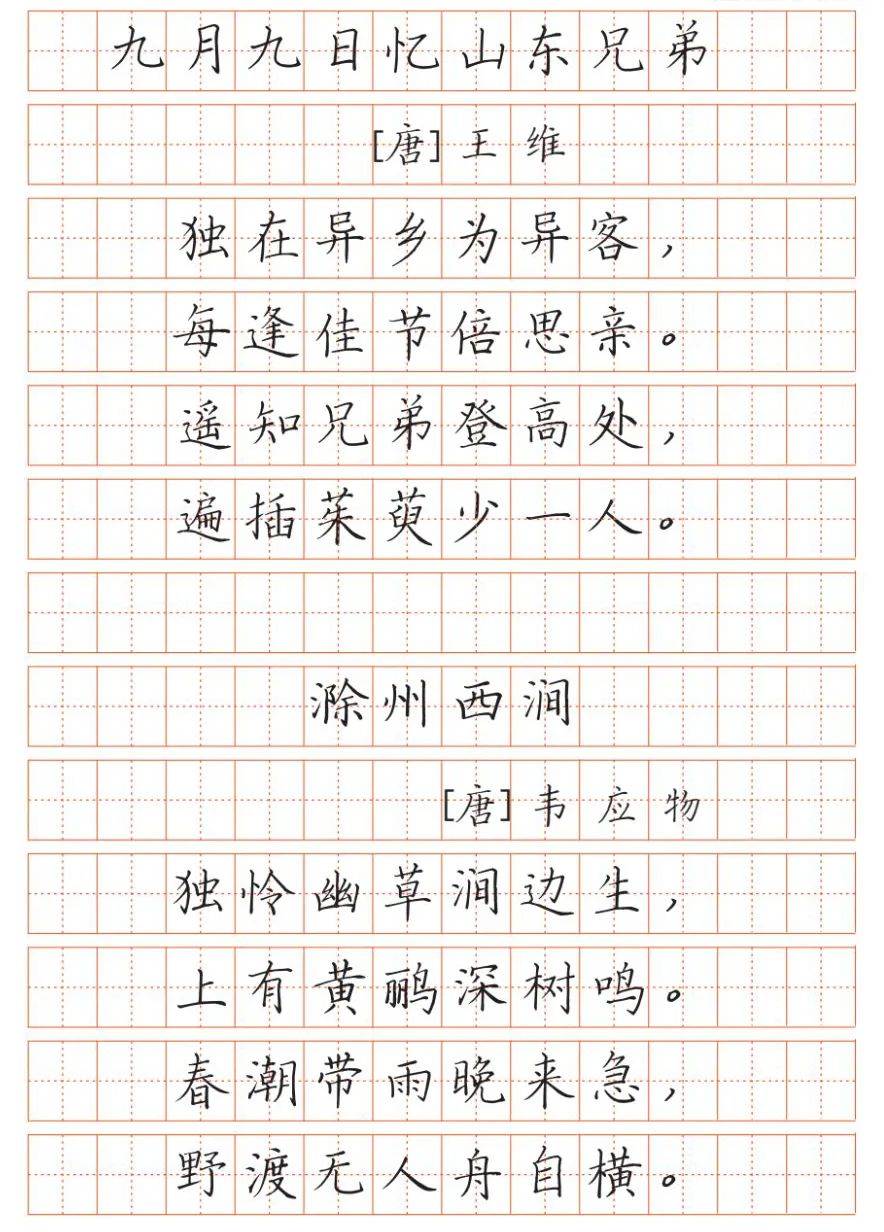 九月九日忆山东兄弟
[唐]王维
独在异乡为异客，
每逢佳节倍思亲。
遥知兄弟登高处，
遍插茱萸少一人。
滁州西涧
[唐]韦应物
独怜幽草涧边生，
上有黄鹂深树鸣。
春潮带雨晚来急，
野渡无人舟自横。